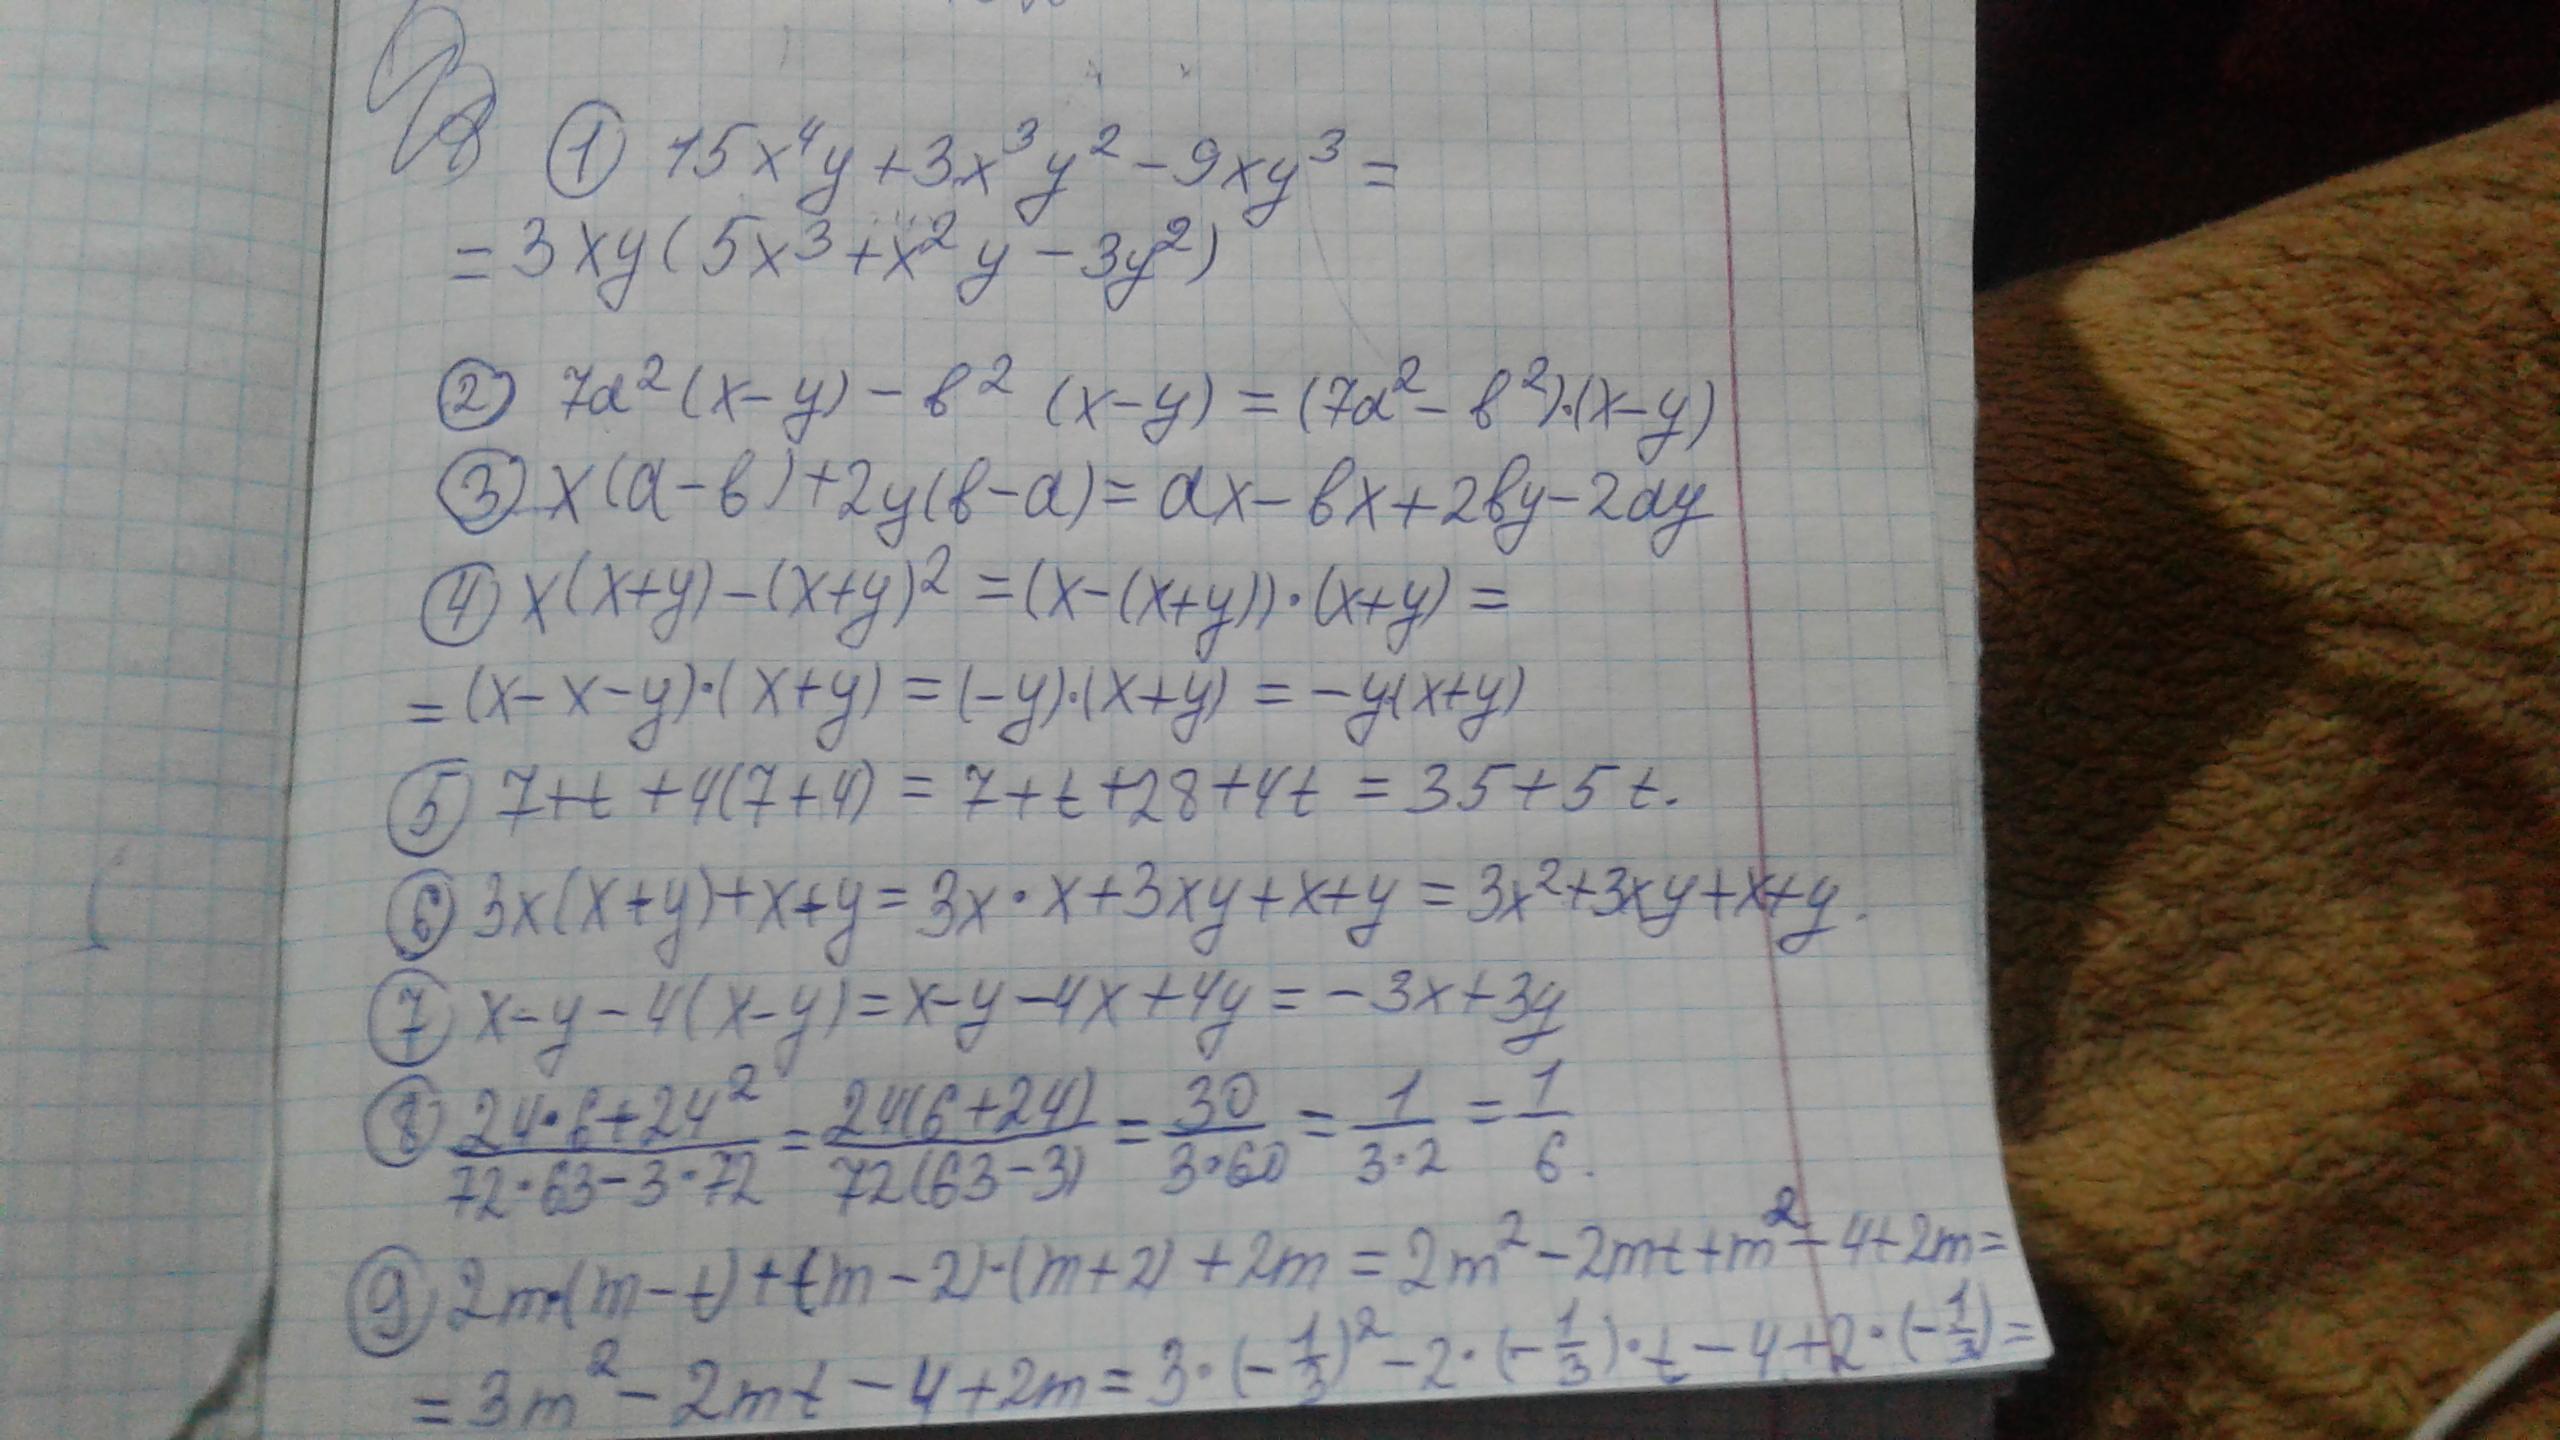 ① 15x⁴y + 3x³y² − 9xy³ =
= 3xy(5x³ + x²y − 3y²)
② 7a²(x−y) − в² (x−y) = (7a² − в²)·(x−y)
③ x(a−в) + 2y(в−a) = ax − вx + 2вy − 2ay
④ x(x+y) − (x+y)² = (x−(x+y))·(x+y) =
= (x−x−y)·(x+y) = (−y)·(x+y) = −y(x+y)
⑤ 7+t+4(7+4) = 7+t+28+4t = 35+5t.
⑥ 3x(x+y)+x+y = 3x·x+3xy+x+y = 3x²+3xy+x+y.
⑦ x−y−4(x−y) = x−y−4x+4y = −3x+3y
⑧ (24·6+24²)/(72·63−3·72) = 24(6+24)/72(63−3) = 30/(3·60) = 1/(3·2) = 1/6.
⑨ 2m·(m−t)+(m−2)·(m+2)+2m = 2m²−2mt+m²−4+2m =
= 3m²−2mt−4+2m = 3·(−1/3)²−2·(−1/3)·t−4+2·(−1/3) =